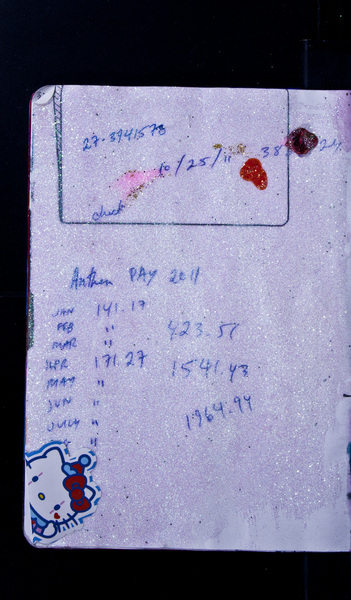 27-3941573
10/25/11 38
check
Anthem PAY 2011
JAN 141.17
FEB "
MAR " 423.51
APR 171.27 1541.43
MAY "
JUN " 1964.94
JULY "
"